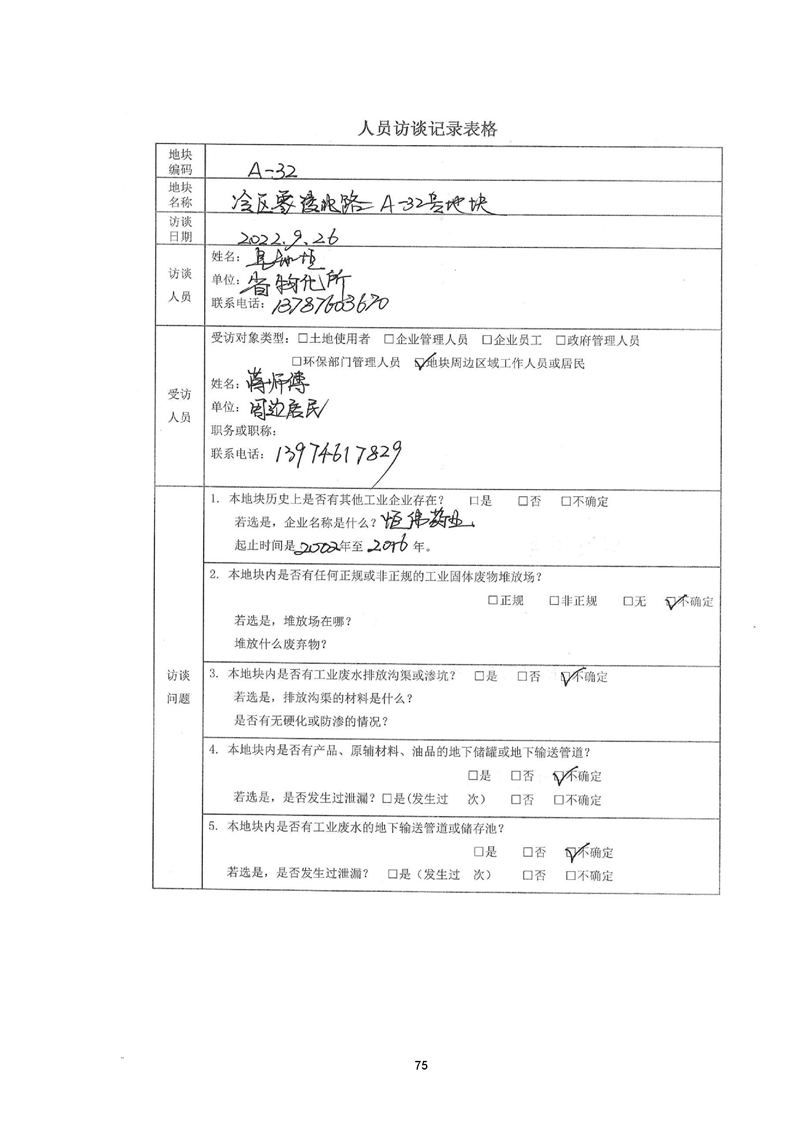 人员访谈记录表格
地块编码 A-32
地块名称 冷区零陵北路 A-32号地块
访谈日期 2022.9.26
访谈人员
姓名：
单位：省物化所
联系电话：13787603670
受访人员
受访对象类型：□土地使用者 □企业管理人员 □企业员工 □政府管理人员
□环保部门管理人员 ☑地块周边区域工作人员或居民
姓名：蒋师傅
单位：周边居民
职务或职称：
联系电话：13974617829
访谈问题
1. 本地块历史上是否有其他工业企业存在？ □是 □否 □不确定
若选是，企业名称是什么？恒伟药业
起止时间是2002年至2016年。
2. 本地块内是否有任何正规或非正规的工业固体废物堆放场？
□正规 □非正规 □无 ☑不确定
若选是，堆放场在哪？
堆放什么废弃物？
3. 本地块内是否有工业废水排放沟渠或渗坑？ □是 □否 ☑不确定
若选是，排放沟渠的材料是什么？
是否有无硬化或防渗的情况？
4. 本地块内是否有产品、原辅材料、油品的地下储罐或地下输送管道？
□是 □否 ☑不确定
若选是，是否发生过泄漏？□是(发生过 次） □否 □不确定
5. 本地块内是否有工业废水的地下输送管道或储存池？
□是 □否 ☑不确定
若选是，是否发生过泄漏？ □是（发生过 次） □否 □不确定
75